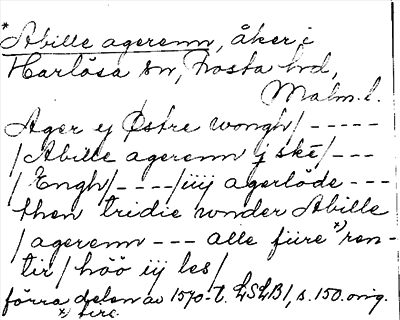 *Abille agerenn, åker i
Harlösa sn, Frosta hd,
Malm. l.
Ager ej Østre wongh/ - - - - -
/Abille agerenn j skč/ - - -
/Engh/ - - - -/iiij agerlöde - - -
then tridie wnder Abille
/agerenn - - - alle fiire *) ren-
tir/ höö iij les/
förra delen av 1570-t. LSLB1, s. 150. orig.
*) fire